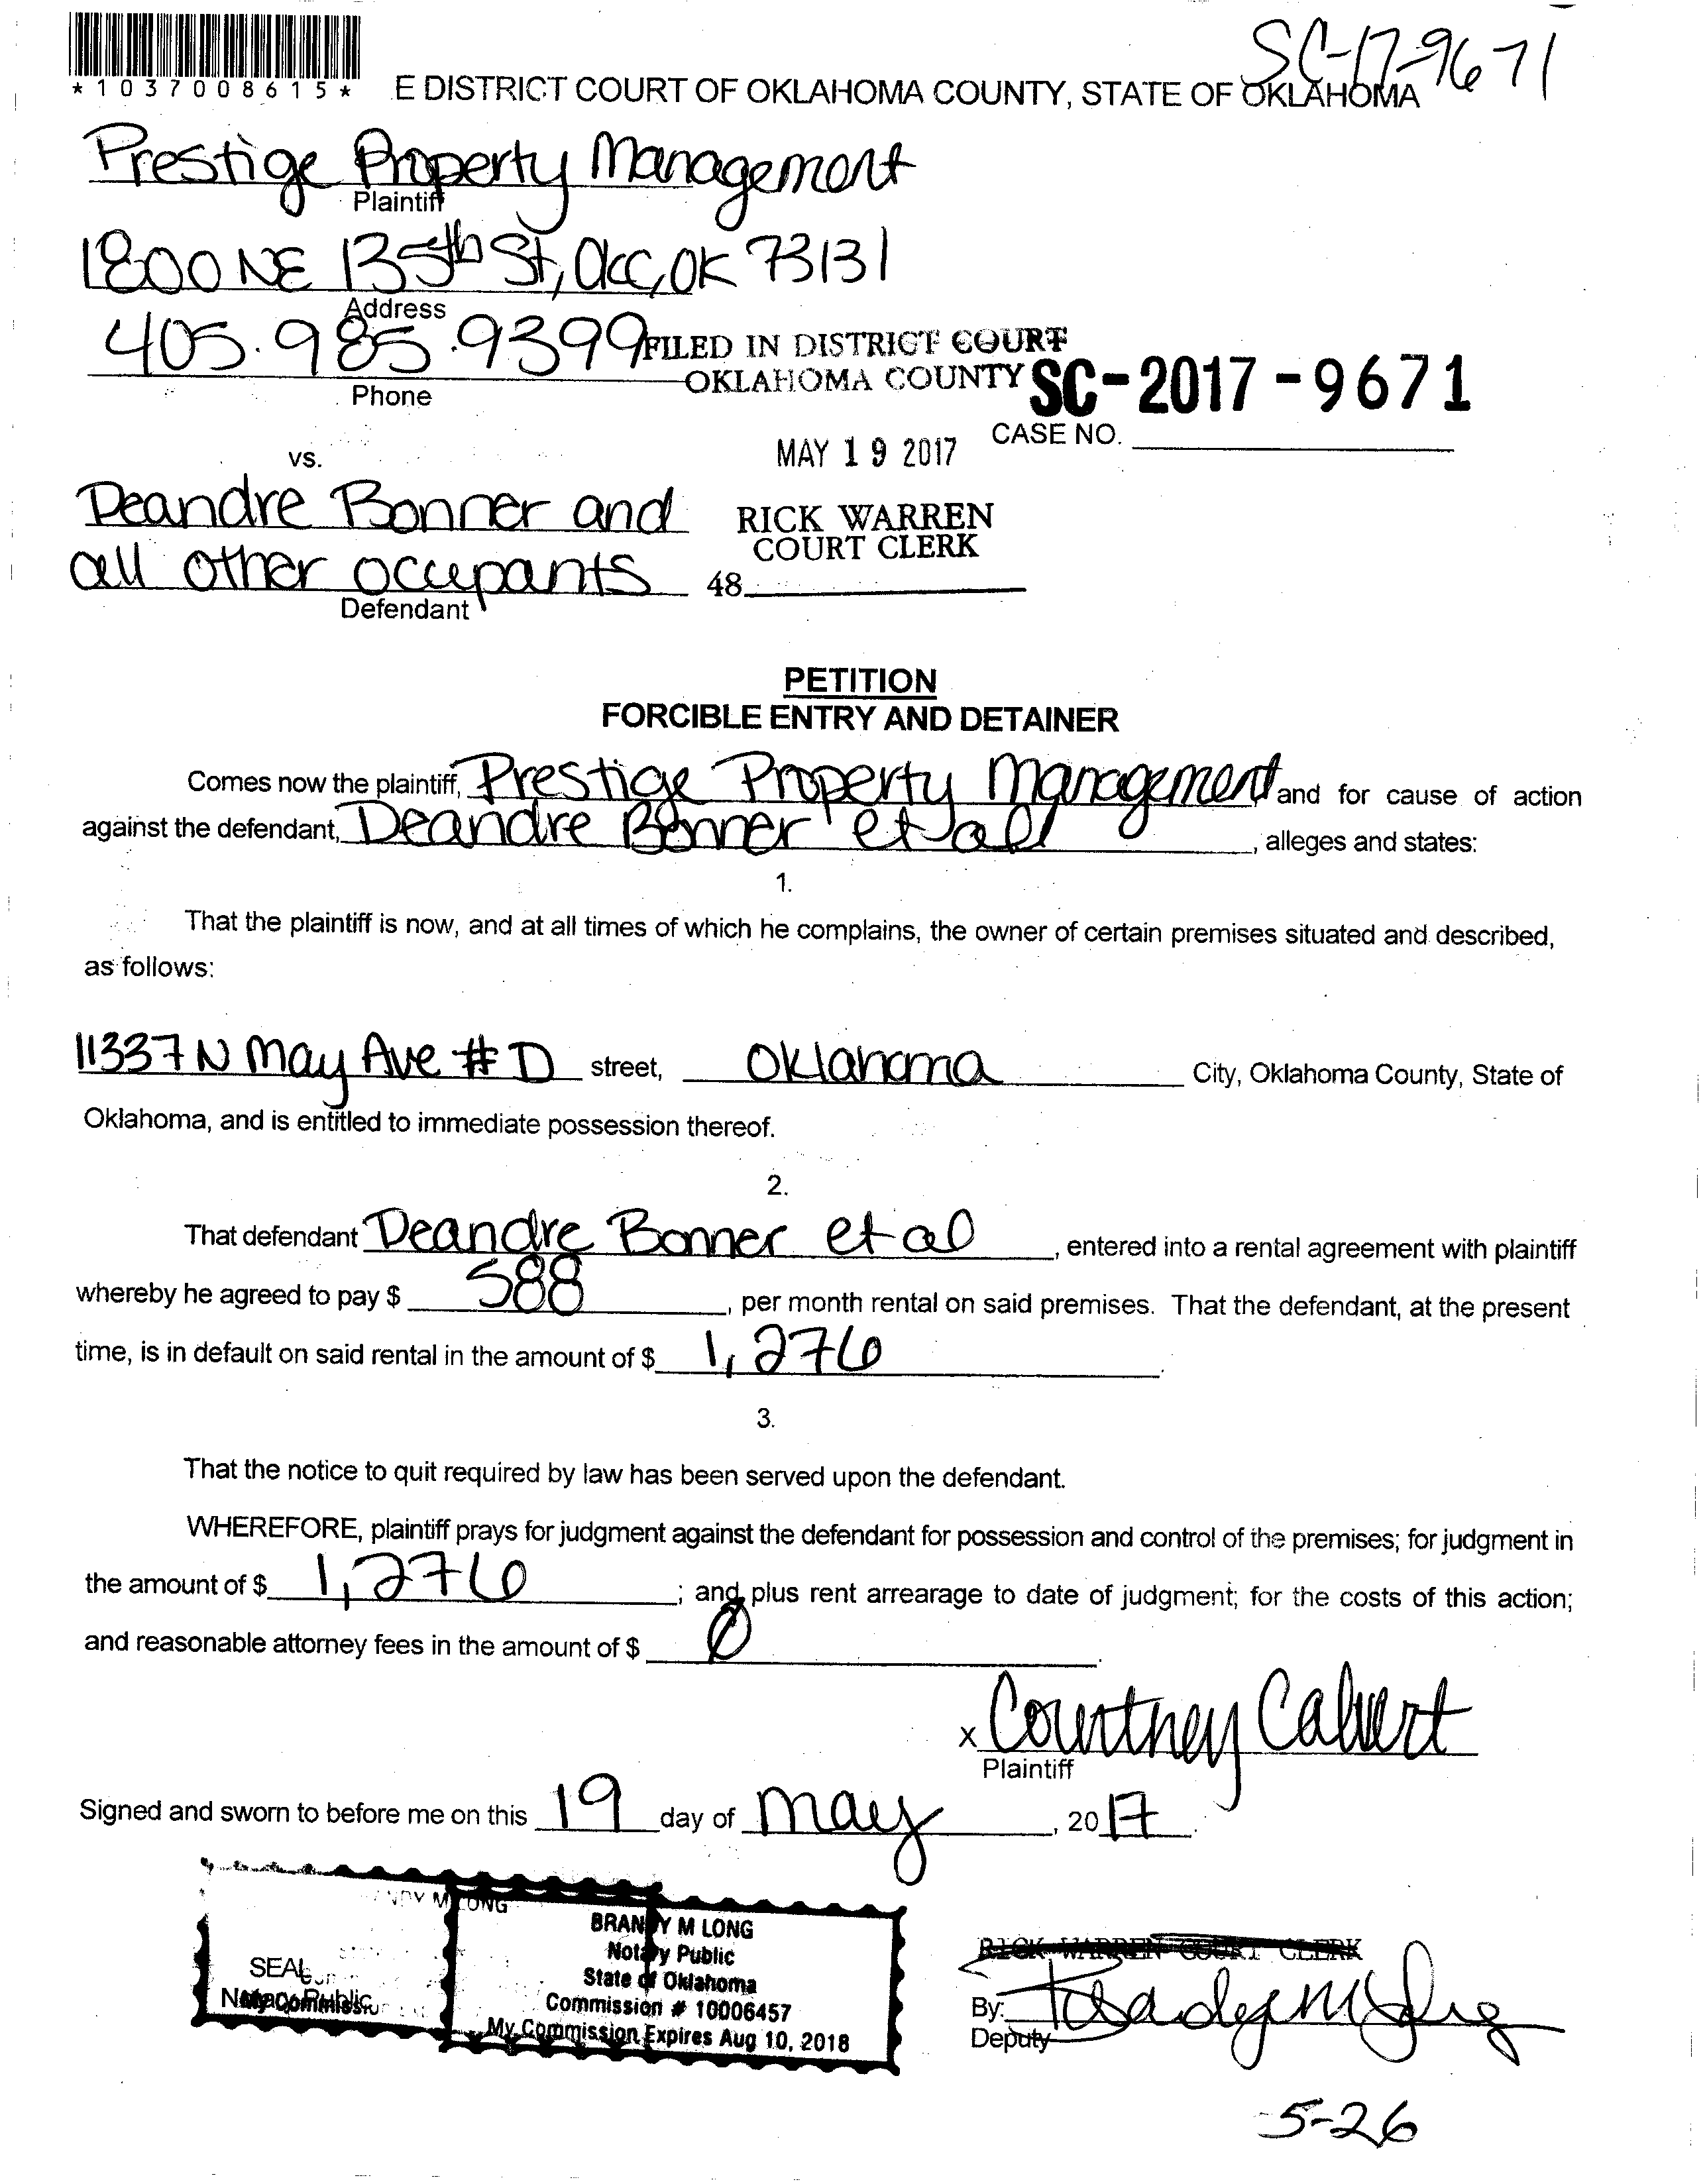 SC-17-9671
*1037008615*
E DISTRICT COURT OF OKLAHOMA COUNTY, STATE OF OKLAHOMA
Prestige Property Management
Plaintiff
1800 NE 135th St, OKC, OK 73131
Address
405.985.9399
Phone
FILED IN DISTRICT COURT
OKLAHOMA COUNTY
SC-2017-9671
CASE NO.
MAY 19 2017
vs.
Deandre Bonner and
all other occupants
Defendant
RICK WARREN
COURT CLERK
48
PETITION
FORCIBLE ENTRY AND DETAINER
Comes now the plaintiff, Prestige Property Management and for cause of action
against the defendant, Deandre Bonner et al, alleges and states:
1.
That the plaintiff is now, and at all times of which he complains, the owner of certain premises situated and described,
as follows:
11337 N May Ave # D street, Oklahoma City, Oklahoma County, State of
Oklahoma, and is entitled to immediate possession thereof.
2.
That defendant Deandre Bonner et al, entered into a rental agreement with plaintiff
whereby he agreed to pay $ 588, per month rental on said premises. That the defendant, at the present
time, is in default on said rental in the amount of $ 1,276.
3.
That the notice to quit required by law has been served upon the defendant.
WHEREFORE, plaintiff prays for judgment against the defendant for possession and control of the premises; for judgment in
the amount of $ 1,276; and, plus rent arrearage to date of judgment; for the costs of this action;
and reasonable attorney fees in the amount of $ 0.
x Courtney Calvert
Plaintiff
Signed and sworn to before me on this 19 day of May, 2017.
BRANDY M LONG
Notary Public
State of Oklahoma
Commission # 10006457
My Commission Expires Aug 10, 2018
SEAL
RICK WARREN COURT CLERK
By:
Deputy
5-26